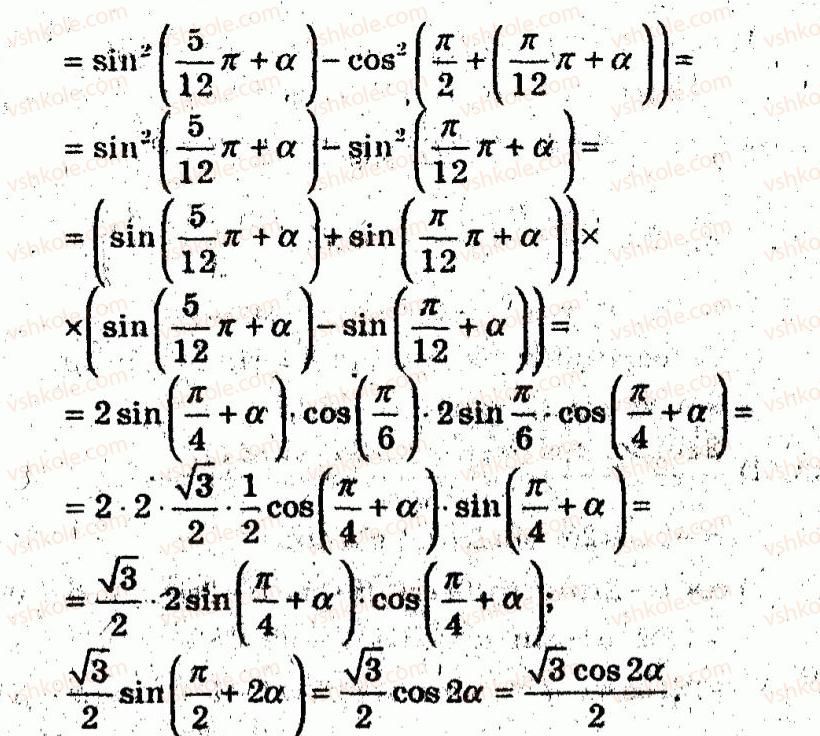 = sin²(5/12 π + α) − cos²(π/2 + (π/12 π + α)) =
= sin²(5/12 π + α) − sin²(π/12 π + α) =
= (sin(5/12 π + α) + sin(π/12 π + α)) ×
× (sin(5/12 π + α) − sin(π/12 + α)) =
= 2 sin(π/4 + α) · cos(π/6) · 2 sin π/6 · cos(π/4 + α) =
= 2 · 2 · √3/2 · 1/2 cos(π/4 + α) · sin(π/4 + α) =
= √3/2 · 2 sin(π/4 + α) · cos(π/4 + α);
√3/2 sin(π/2 + 2α) = √3/2 cos 2α = √3 cos 2α/2.
vshkole.com